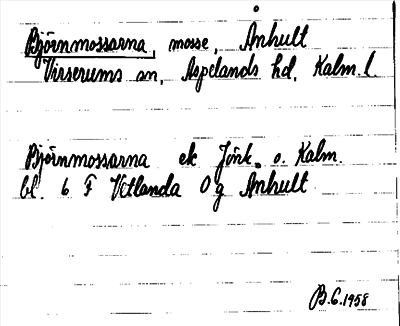 Björnmossarna, mosse, Ånhult
Virserums sn, Aspelands hd, Kalm. l.
Björnmossarna ek Jönk. o. Kalm.
bl. 6 F Vetlanda Og Anhult
B.G. 1958